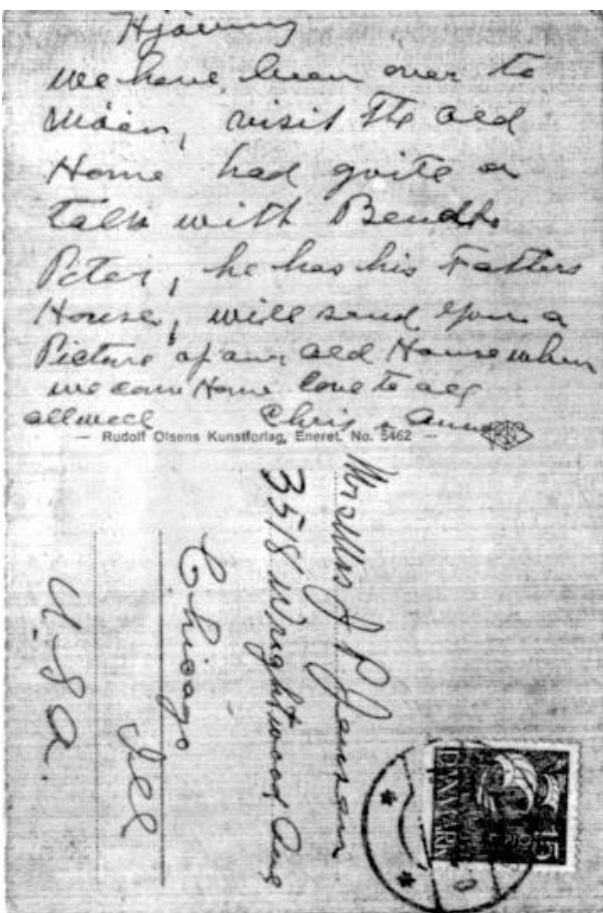 Hjörring
we have been over to
Möen, visit The old
Home had quite a
talk with Bendt
Peter, he has his Fathers
House, will send you a
Picture of our old House when
we come Home love to all
all well Chris & Anna
— Rudolf Olsens Kunstforlag, Eneret. No. 5462 —
Mr & Mrs J P Jensen
3518 Wrightwood Ave
Chicago
Ill
U.S.A.
DANMARK
15